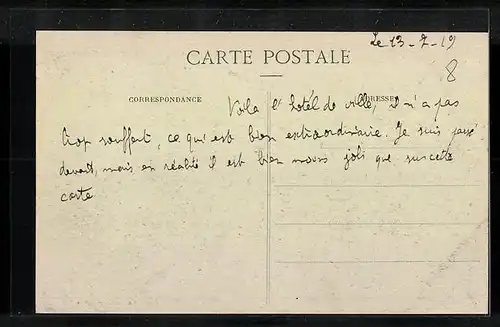 Le 13-7-19
CARTE POSTALE
8
CORRESPONDANCE
ADRESSE
Voila l'hotel de ville, il n'a pas
trop souffert, ce qui est bien extraordinaire. Je suis passé
devant, mais en réalité il est bien moins joli que sur cette
carte